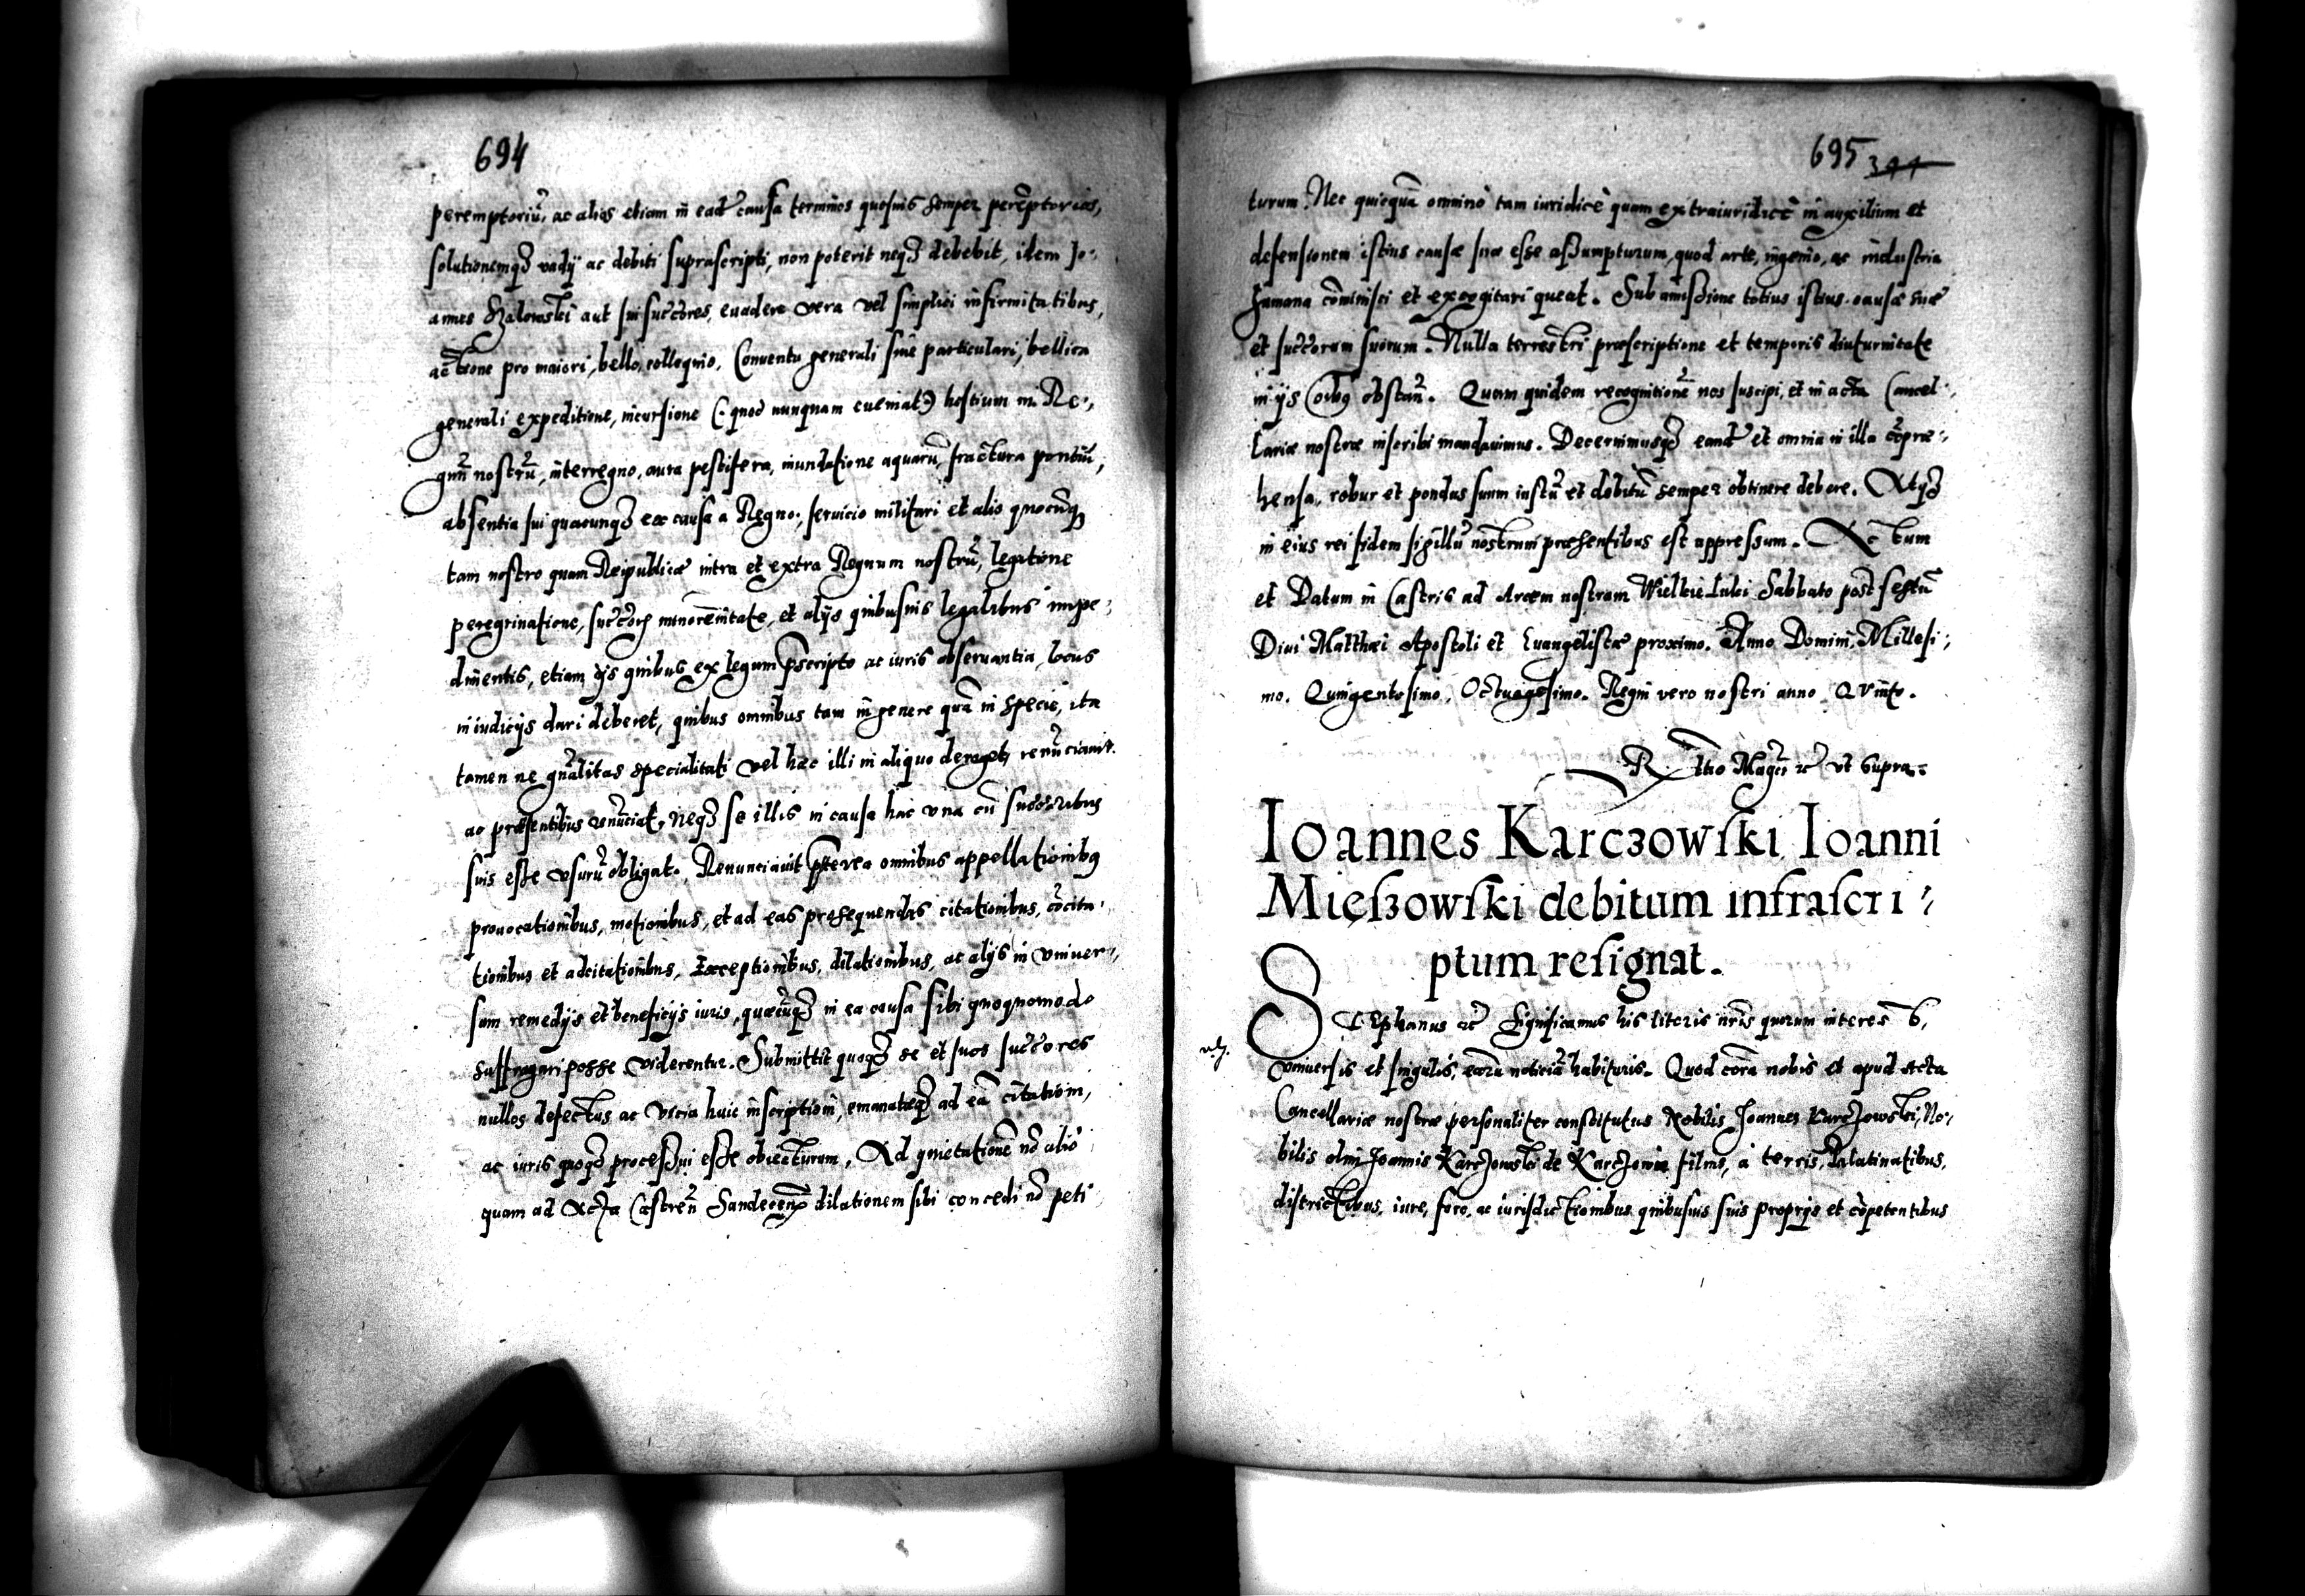 694
peremptoriũ, ac alios etiam in ead causa terminos quosuis semper perẽptorios,
solutionemqȝ vadij ac debiti suprascripti, non poterit neqȝ debebit, idem Jo:
annes Szalowski aut sui succores, euadere vera vel simplici infirmitatibus,
actione pro maiori, bello, colloquio, Conuentu generali siue particulari, bellica
generali expeditione, incursione (: quod nunquam eueniat:) hostium in Re:,
gnũ nostrũ, interregno, aura pestifera, inundatione aquarũ, fractura pontiũ,
absentia sui quacunqȝ ex causa a Regno, seruicio militari et alio quocũqȝ
tam nostro quam Reipublicæ intra et extra Regnum nostrũ, legatione
peregrinatione, succorũ minorẽnitate, et alijs quibusuis legalibus impe:
dimentis, etiam ijs quibus ex legum pscripto ac iuris obseruantia, locus
in iudicijs dari deberet, quibus omnibus tam in genere quã in specie, ita
tamen ne gnãlitas specialitati vel hæc illi in aliquo deroget, renũciauit
ac præsentibus renũciat, neqȝ se illis in causa hac vna cũ succoribus
suis esse vsurũ obligat. Renunciauit pterea omnibus appellationibꝫ
prouocationibus, motionibus, et ad eas prosequendas citationibus, cõcita:
tionibus et adcitationibus, Exceptionibus, dilationibus, ac alijs in vniuer:,
sum remedijs et beneficijs iuris, quæcũqȝ in ea causa sibi quoquomodo
suffragari posse viderentur. Submittit quoqȝ se et suos succores
nullos defectus ac vicia huic inscriptioni, emanatæqȝ ad eã citationi,
ac iuris quoqȝ processui esse obiecturum, Ad quietationẽ nõ alio
quam ad Acta Castreñ Sandeceñ dilationem sibi concedi nõ peti
695 344
turum. Nec quicquã omnino tam iuridicè quam extraiuridicè in auxilium et
defensionem istius causæ suæ esse assumpturum, quod arte, ingenio, ac industria
humana cõminisci et excogitari queat. Sub amissione totius istius causæ suæ
et succorum suorum. Nulla terrestri præscriptione et temporis diuturnitate
in ijs oibꝫ obstañ. Quam quidem recognitionẽ nos suscipi, et in acta Cancel:
lariæ nostræ inscribi mandauimus. Decernimusqȝ eand et omnia in illa cõpræ:,
hensa, robur et pondus suum iustũ et debitũ semper obtinere debere. Atqȝ
in eius rei fidem sigillũ nostrum præsentibus est appressum. Actum
et Datum in Castris ad Arcem nostram Wielkie Luki Sabbato post festũ
Diui Matthæi Apostoli et Euangelistæ proximo. Anno Domini, Millesi:,
mo. Quingentesimo, Octuagesimo. Regni vero nostri anno Qvinto.
R. ltio Magci rc vt Supra.
Ioannes Karcȝowſki Ioanni
Mięſȝowſki debitum infraſcri:
ptum reſignat.
STephanus rc Significamus his literis nris quorum interest,
vniuersis et singulis, eorũ noticiã habituris. Quod corã nobis et apud Acta
Cancellariæ nostræ personaliter constitutus Nobilis Joannes Karczowski, No:
bilis olim Joannis Karczowski de Karczowie filius, à terris, Palatinatibus,
districtibus, iure, foro, ac iurisdictionibus quibusuis suis proprijs et cõpetentibus